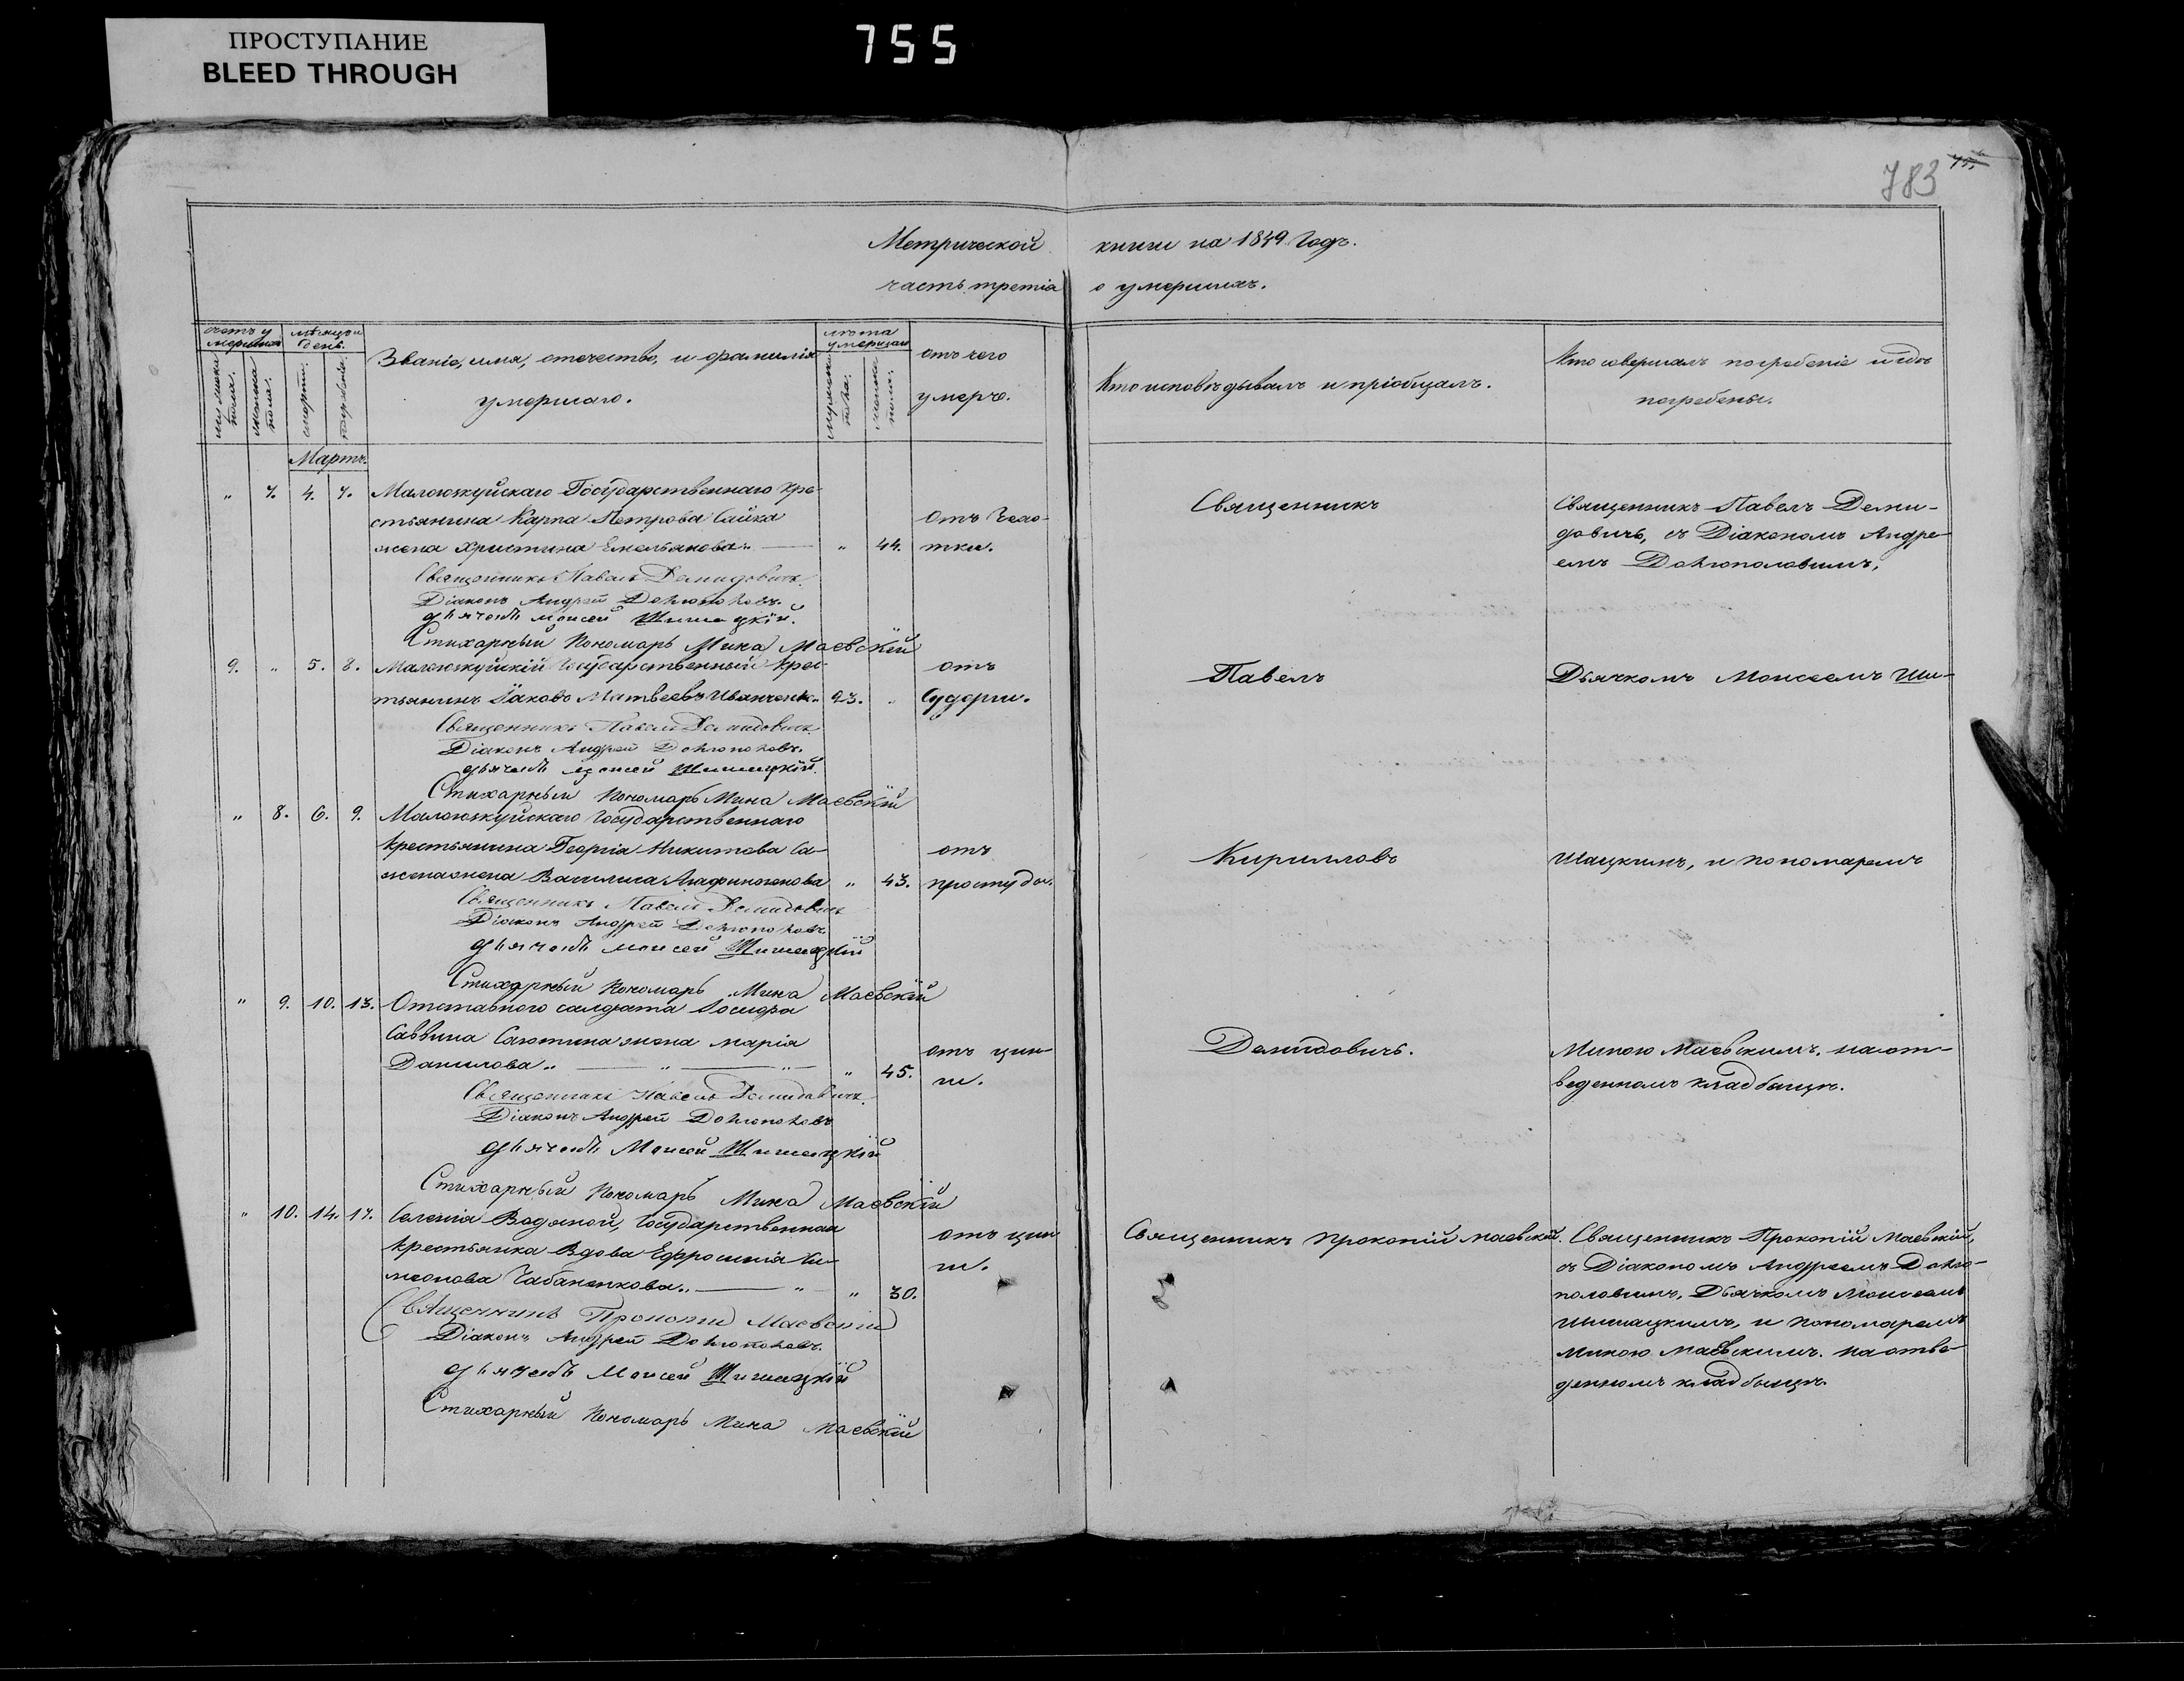 ПРОСТУПАНИЕ
BLEED THROUGH
755
783
Метрической книги на 1849 Годъ.
часть третія о умершихъ.
счетъ у
мершихъ
мужеска
пола.
женска
пола.
мѣсяцъ и
день.
смерти.
погребенія.
Званіе, имя, отечество, и фамилія
умершаго.
лѣта
умершаго
мужска
пола.
женска
пола.
отъ чего
умеръ.
Кто исповѣдывалъ и пріобщалъ.
Кто совершалъ погребеніе и гдѣ
погребены.
Мартъ.
" 7. 4. 7. Государственнаго кре-
стьянина Карпа Петрова Сайка
жена Христина Емельянова. " 44.
отъ Чахо-
тки.
Священникъ Павелъ Демидовичъ.
Діаконъ Андрей
дьячокъ Моисей Шишацкій.
Стихарный Пономарь Мина Маевскій
Священникъ
Священникъ Павелъ Деми-
довичъ, съ Діакономъ Андре-
емъ
9. " 5. 8. Государственный крес-
тьянинъ Іаковъ Матвеевъ Иванченк. 23. "
отъ
Судорги.
Священникъ Павелъ Демидовичъ
Діаконъ Андрей
дьячокъ Моисей Шишацкій.
Стихарный Пономарь Мина Маевскій
Павелъ
Дьячкомъ Моисеемъ Ши-
" 8. 6. 9. Государственнаго
крестьянина Георгія Никитова Са-
жена Василиса " 43.
отъ
простуды.
Священникъ Павелъ Демидовичъ
Діаконъ Андрей
дьячокъ Моисей Шишацкій
Стихарный Пономарь Мина Маевскій
Кирилловъ
шацкимъ, и пономаремъ
" 9. 10. 13. Отставного салдата
Саввина жена Марія
Данилова " " " 45.
отъ цин-
ги.
Священникъ Павелъ Демидовичъ.
Діаконъ Андрей
дьячокъ Моисей Шишацкій
Стихарный Пономарь Мина Маевскій
Демидовичъ.
Миною Маевскимъ. на от-
веденномъ кладбищѣ.
" 10. 14. 17. Селенія Водяной, Государственная
крестьянка Вдова Ефросинія Си-
меонова Чабаненкова. " " 30.
отъ цин
ги.
Священникъ Прокопій Маевскій
Діаконъ Андрей
дьячокъ Моисей Шишацкій
Стихарный Пономарь Мина Маевскій
Священникъ Прокопій Маевскій.
Священникъ Прокопій Маевскій,
съ Діакономъ Андреемъ
Дьячкомъ Моисеемъ
Шишацкимъ, и пономаремъ
Миною Маевскимъ. на отве-
денномъ кладбищѣ.